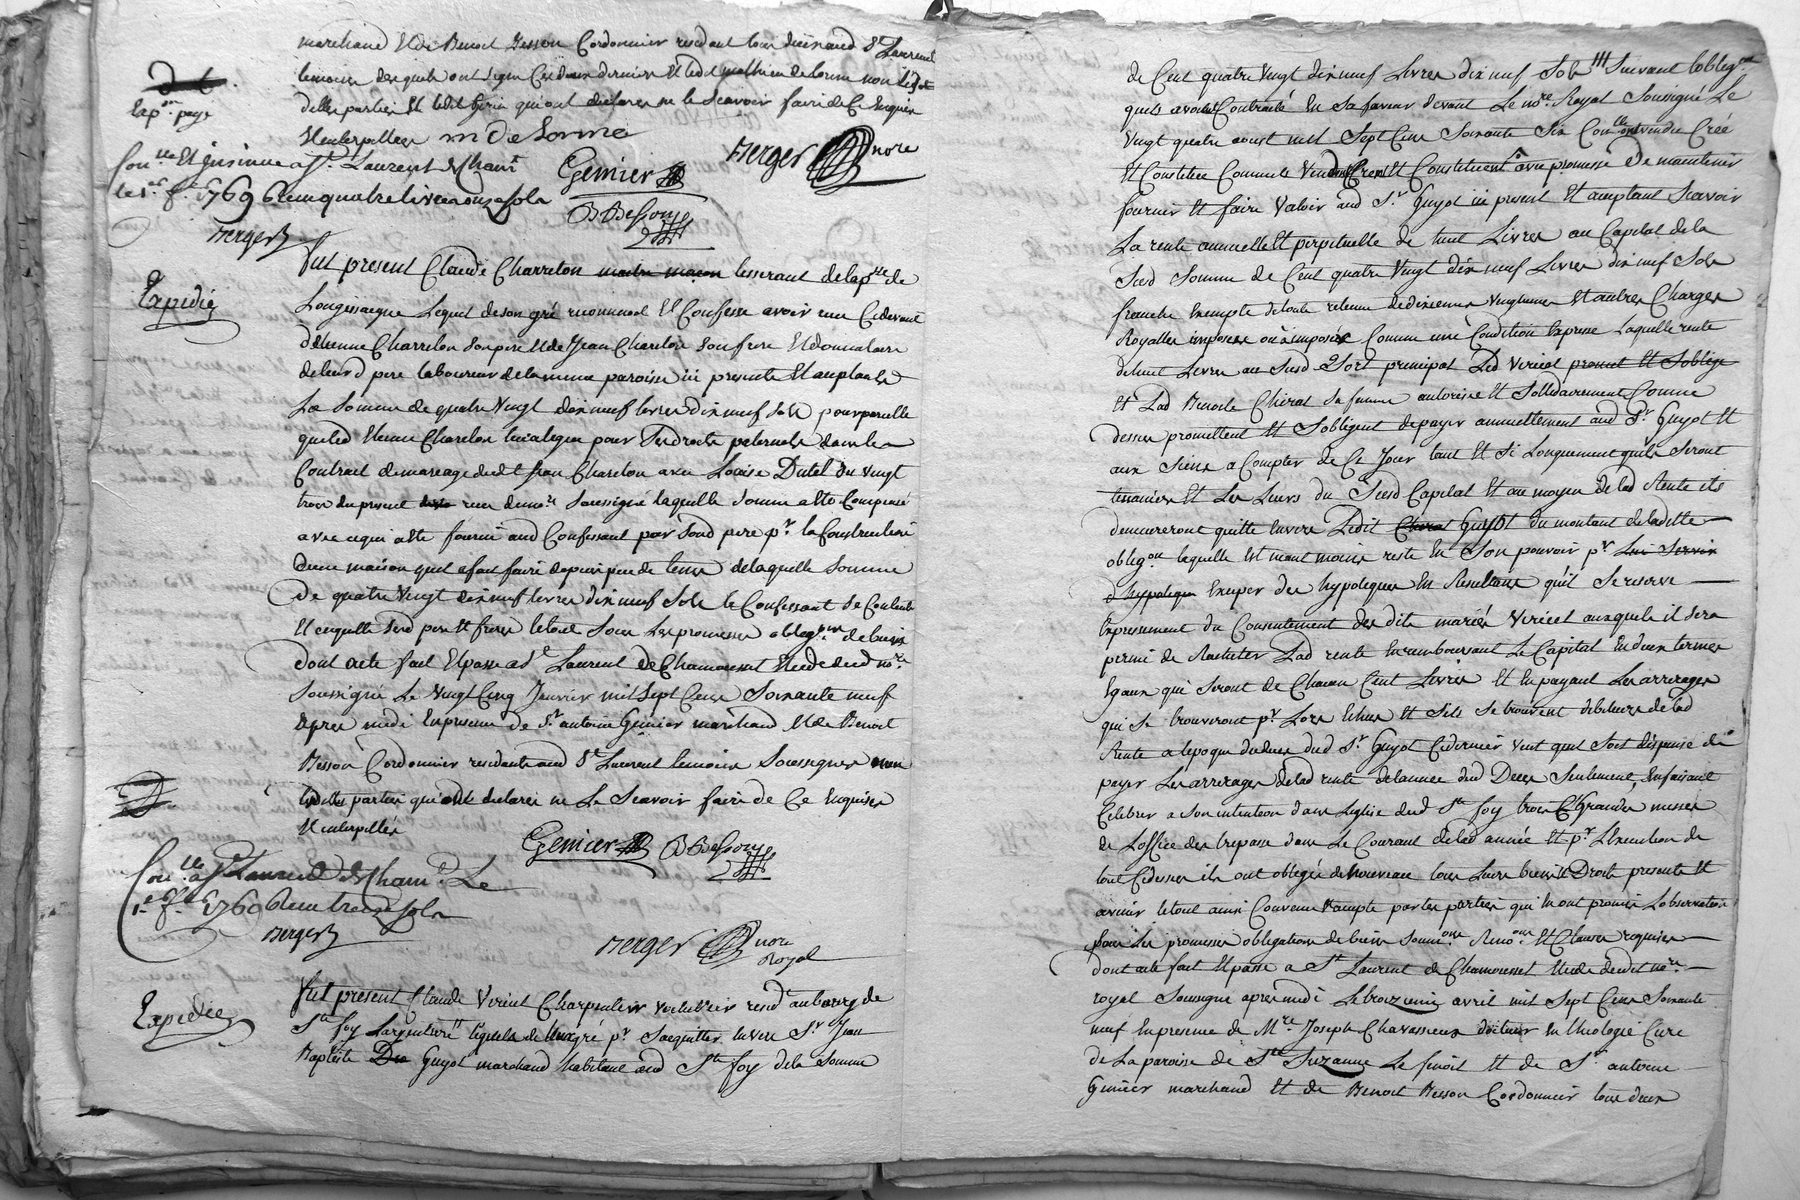 marchand et de Benoit Besson Cordonnier residant tous deux aud St Laurent
temoins lesquels ont signé Ces deux derniers et led. mathieu delorme non lesd.
dittes parties et ledit qui ont declaré ne le scavoir faire de Ce Enquis
et interpellés m De Lorme
Exp.on paye
Berger nore
Con.lle et insinué a St. Laurent de Cham.t
le 1er f.er 1769 quatre livres onze sols
Genier
B Besson
Berger
Expedié
Fut present Claude Charreton maitre maçon tisserant de la p.sse de
Longessaigne lequel de son gré reconnoit et Confesse avoir reçu Cidevant
d'étienne Charreton son pere et de Jean Chareton son frere et donnataire
de leurd pere laboureur de la meme paroisse ici presents et acceptants
La somme de quatre Vingt dixneuf livres dixneuf sols pour pareille
que led Etienne Chareton lui a legué pour Ses droits paternels dans le
Contrat de mariage dud.t Jean Chareton avec Louise Dutel du vingt
trois du present reçu de no.re soussigné laquelle somme a été Compensé
avec ce qui a été fourni aud Confessant par Sond pere p.r la Construction
d'une maison quil a fait faire depuis peu de tems de laquelle somme
De quatre Vingt dixneuf livres dixneuf sols le Confessant se Contente
Et en quitte sesd pere et frere le tout sous les promesses oblig.ons de biens
dont acte fait et passé a St Laurent de Chamousset etude dud no.re
soussigné Le Vingt Cinq Janvier mil sept Cens Soixante neuf
apres midi en presence de S.r antoine Genier marchand et de Benoit
Besson Cordonnier residants aud St Laurent temoins Soussignés non
lesdittes parties qui ont declaré ne Le Scavoir faire de Ce Enquises
et interpellés
Genier B Besson
Con.lle a St Laurent de Cham.t Le
1er f.er 1769 Reçu treize sols
Berger
Berger nore Royal
Expediée
Fut present Claude Vericel Charpentier resid au bourg de
Ste foy Largentiere lequel de son gré p.r Sacquitter envers S.r Jean
Baptiste Guyot marchand habitant aud Ste foy de la Somme
de Cent quatre Vingt dix neuf Livres dix neuf Sols Suivant lobleg.on
quils avoient Contracté en Sa faveur devant Le no.re Royal Soussigné Le
Vingt quatre aoust mil Sept Cens Soixante Six Con.llé ont vendu Créé
et Constitué Comme ils Vendent Créent et Constituent avec promesse De maintenir
fournir et faire Valoir aud S.r Guyot ici present et acceptant Scavoir
La rente annuelle et perpetuelle de huit Livres au Capital de la
Susd Somme de Cent quatre Vingt dix neuf Livres dix neuf Sols
franche exempte de toute retenue de dixiemes vingtiemes et autres Charges
Royalles imposées ou à imposer Comme une Condition Expresse Laquelle rente
de huit Livres au Susd Sort principal Led Vericel promet et Soblige
et Lad Benoite Chirat Sa femme autorisée et Solidairement Comme
dessus promettent et Sobligent de payer annuellement aud S.r Guyot et
aux Siens a Compter de Ce Jour tant et Si Longuement quils Seront
tenanciers et Les Leurs du Susd Capital et au moyen de lad Rente ils
demeureront quitte envers Ledit Chirat Guyot du montant de laditte
oblig.on laquelle est neant moins reste en Son pouvoir p.r Lui Servir
d'hypoteque Exuper des hypoteques en Resultant quil Se reserve
Expressement du Consentement des dits mariés Vericel auxquels il Sera
permi de Racheter Lad rente En remboursant Le Capital en deux termes
Egaux qui Seront de Chacun Cent Livres et en payant Les arrerages
qui Se trouveront p.r Lors Echus et Sils Se trouvent debiteurs de lad
Rente a lepoque du deces dud S.r Guyot Ce dernier veut quil Soit dispensé de
payer Les arrerages de lad rente de lannée dud Deces Seulement, en faisant
Celebrer a Son intention dans Leglise dud Ste foy trois Grandes messes
de Loffice des trepassé dans Le Courant de lad année et p.r Lexecution de
tout Cidessus ils ont obligés de nouveau tous Leurs biens et Droits presents et
avenir le tout ainsi Convenu et accepté par les parties qui en ont promis Lobservation
sous Les promesses obligations de biens Soum.ons Reno.ons et Clauses requises
dont acte fait et passé a St Laurent de Chamousset etude dudit no.re
royal Soussigné apres midi Le troizieme avril mil Sept Cens Soixante
neuf en presence de M.re Joseph Chavassieux docteur en theologie Curé
de La paroisse de Ste Suzanne Le et de S.r antoine
Genier marchand et de Benoit Besson Cordonnier tous deux